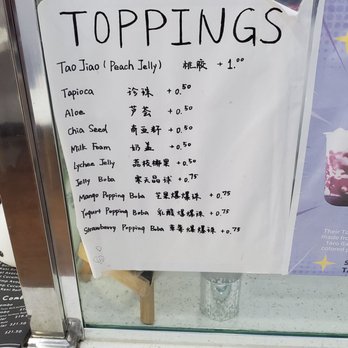 TOPPINGS
Tao Jiao (Peach Jelly) 桃胶 +1.00
Tapioca 珍珠 +0.50
Aloe 芦荟 +0.50
Chia Seed 奇亚籽 +0.50
Milk Foam 奶盖 +0.50
Lychee Jelly 荔枝椰果 +0.50
Jelly Boba 寒天晶球 +0.75
Mango Popping Boba 芒果爆爆珠 +0.75
Yogurt Popping Boba 乳酸爆爆珠 +0.75
Strawberry Popping Boba 草莓爆爆珠 +0.75
Their Ta
made from
Taro Ba
colored